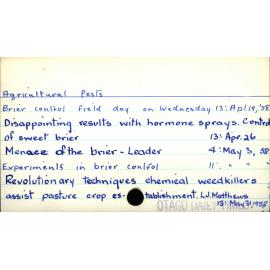 Agricultural Pests
Brier control field day on Wednesday 13: Apl 19, '58
Disappointing results with hormone sprays. Control
of sweet brier 13: Apr. 26
Menace of the brier - Leader 4: May 3, 58
Experiments in brier control 11: " " "
Revolutionary Techniques chemical weedkillers
assist pasture crop es- tablishment. L.J. Matthews
OTAGO DAILY TIMES 13: May 31 1958